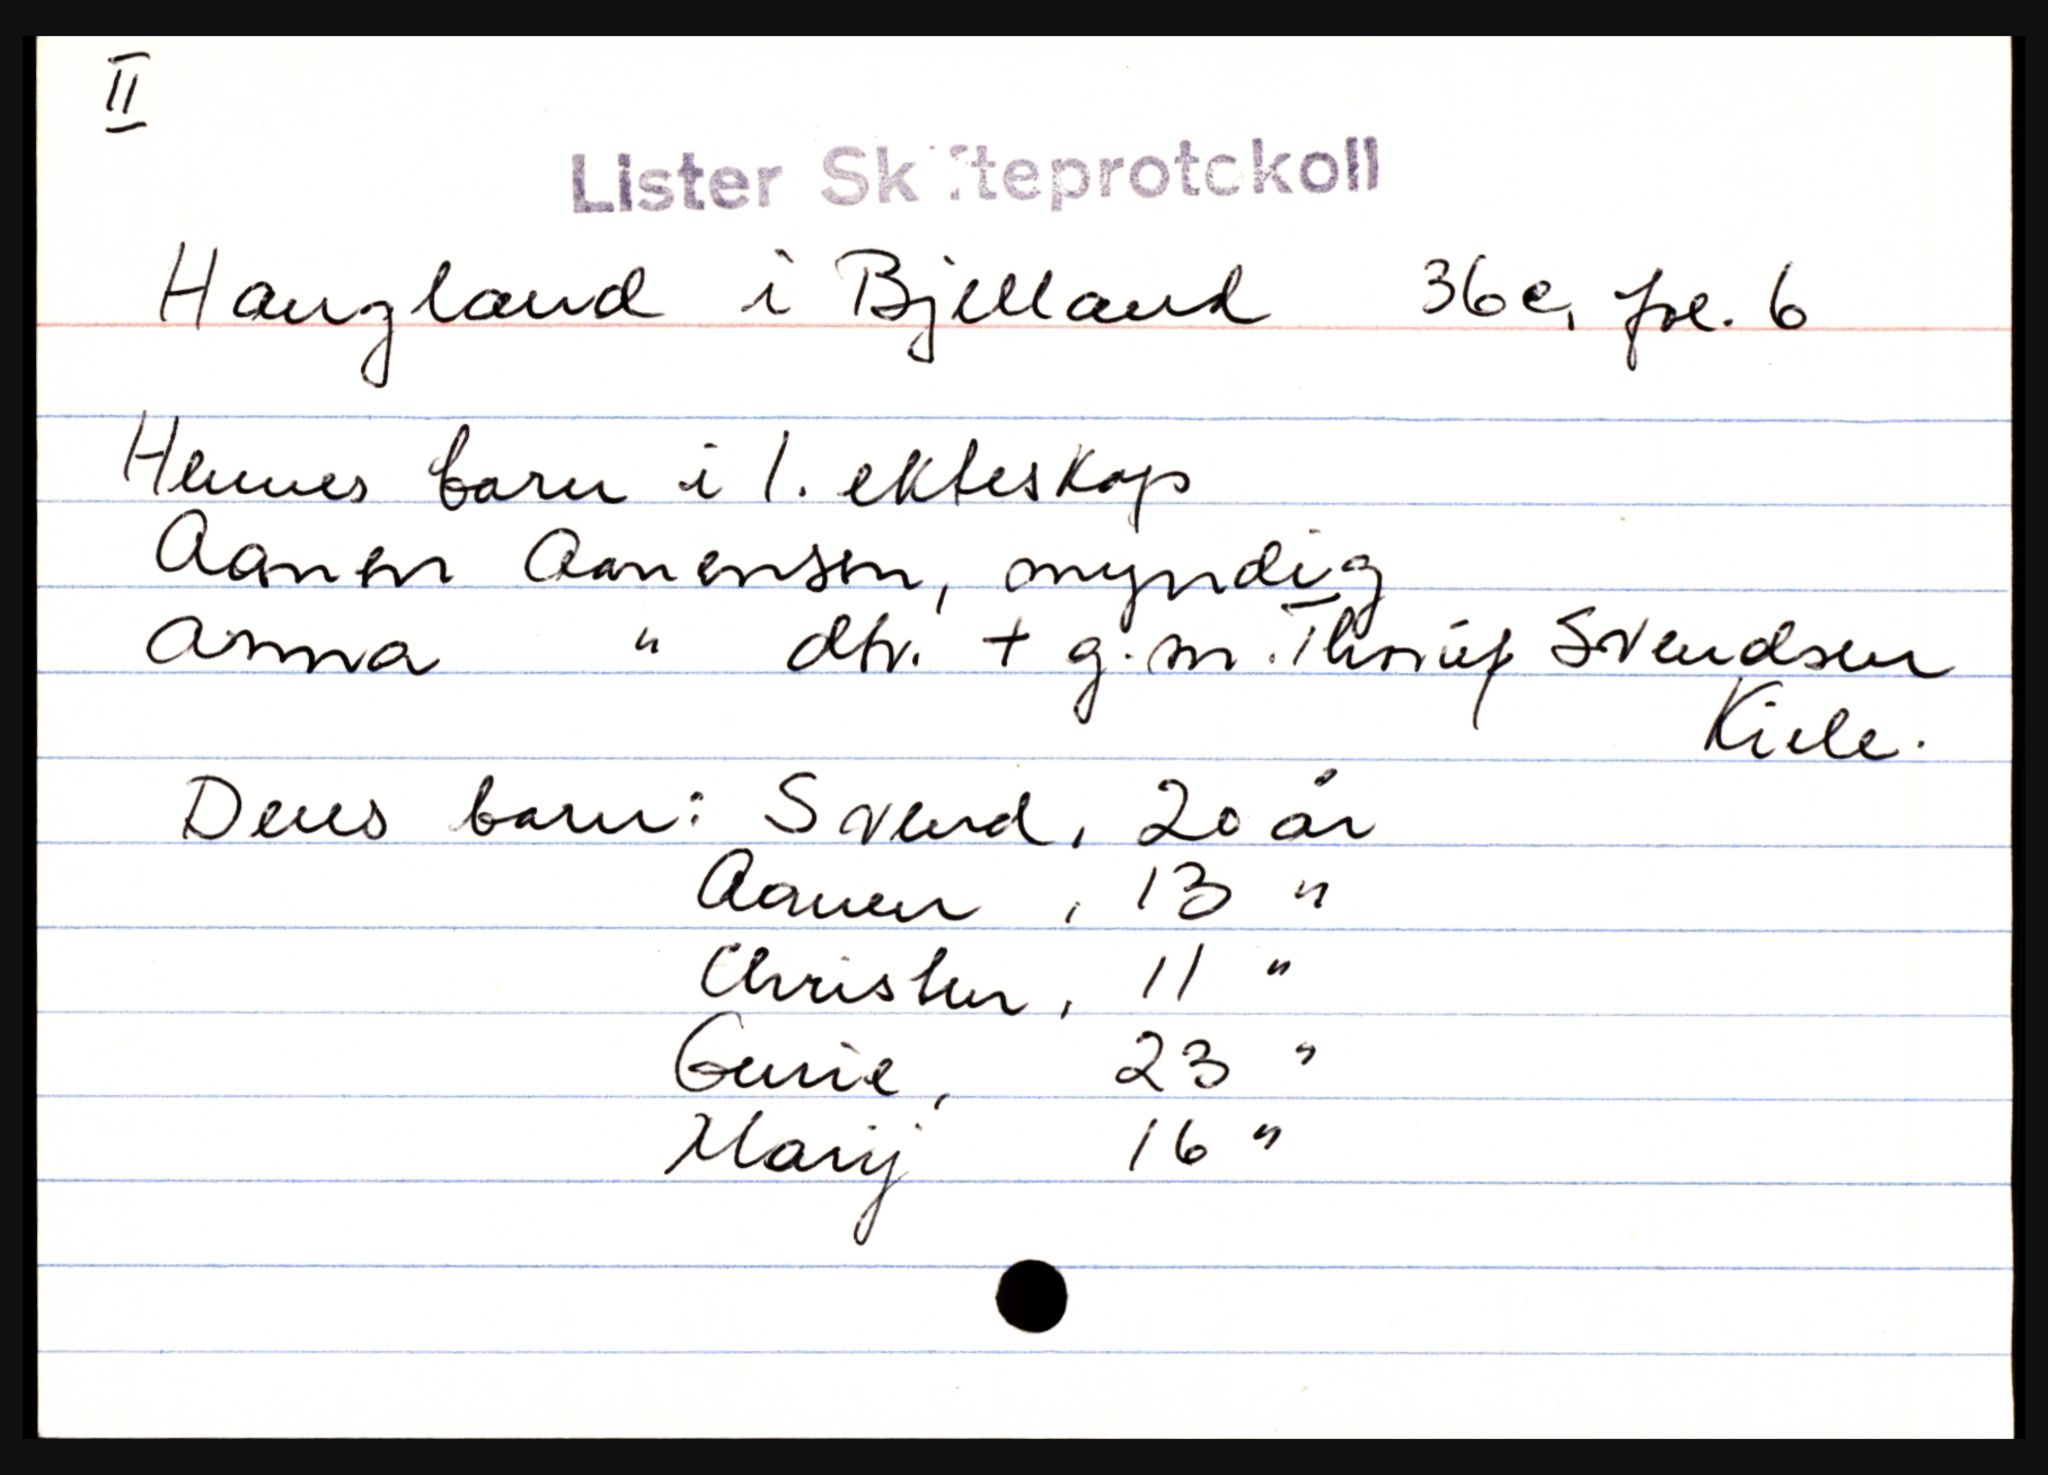 II
Lister Skifteprotokoll
Haugland i Bjelland 36e, fol. 6
Hennes barn i 1. ekteskap
Aanen Aanensen, myndig
Anna " dtr. + g.m. Svendsen
Kiele.
Deres barn: Svend, 20 år
Aanen, 13 "
Christen, 11 "
Gurie, 23 "
Marij 16 "